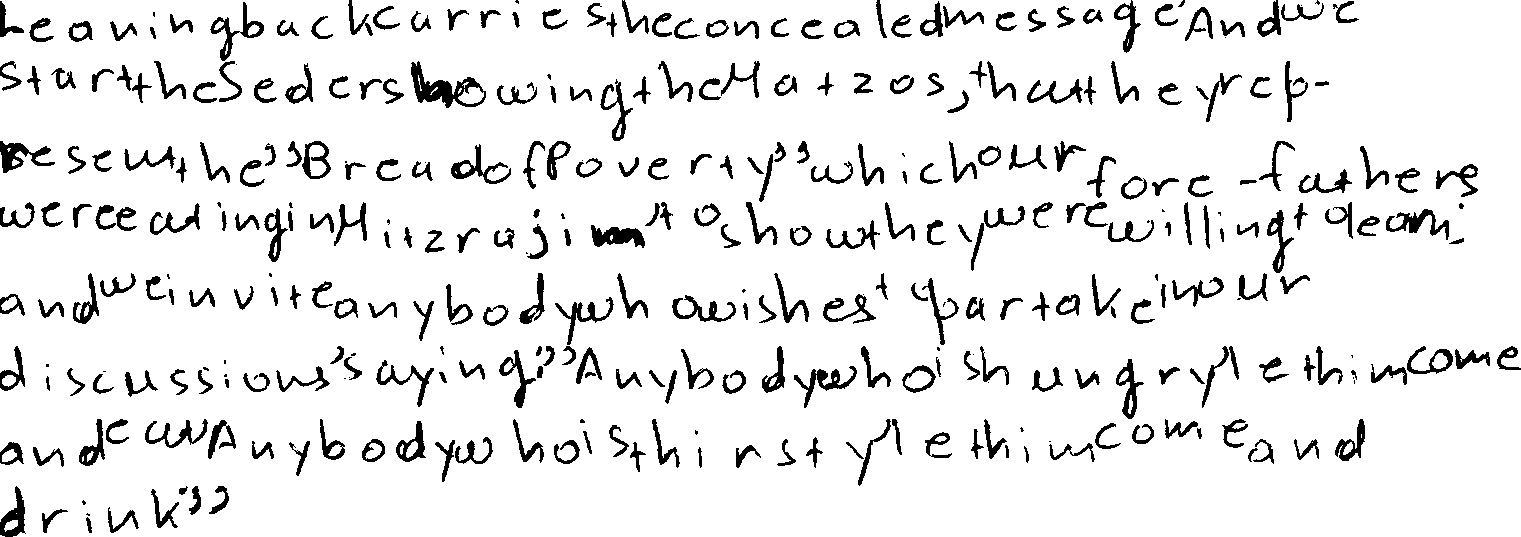 Leaning back carries the concealed message. And we
start the Seder showing the Matzos, that they rep-
resent the "Bread of Poverty", which our fore-fathers
were eating in Mitzrajim, to show they were willing to learn,
and we invite anybody who wishes to partake in our
discussions, saying: "Anybody who is hungry, let him come
and eat. Anybody who is thirsty, let him come and
drink."